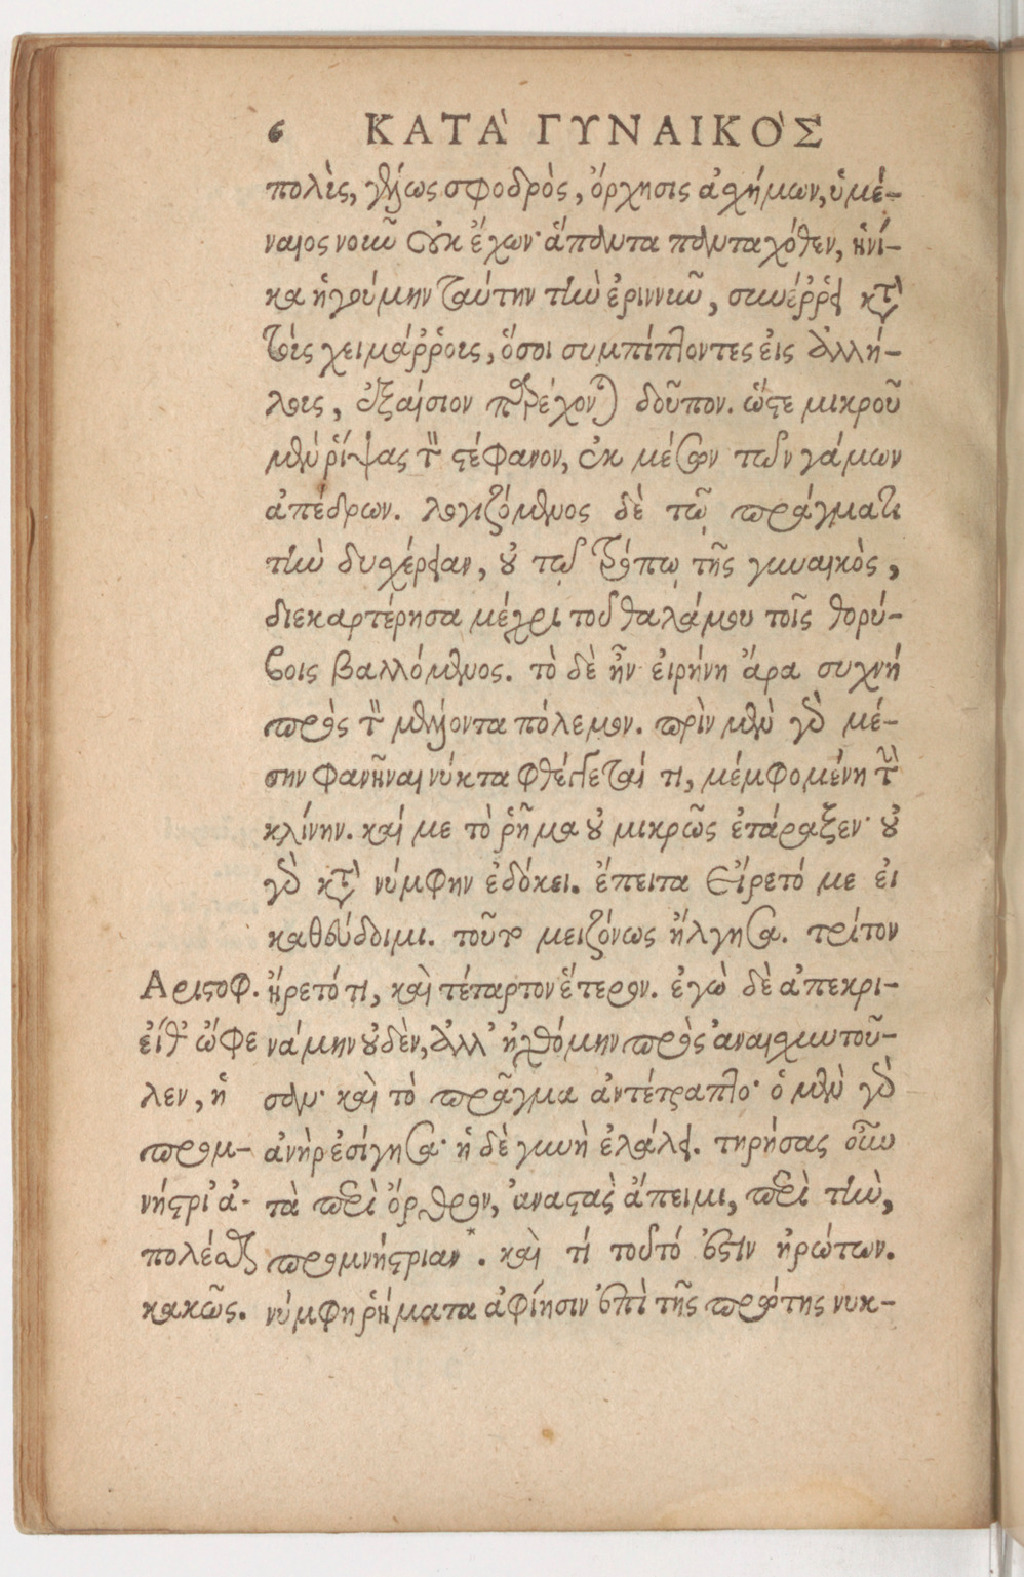 6 ΚΑΤᾺ ΓΥΝΑΙΚῸΣ
πολὺς, γέλως σφοδρὸς, ὄρχησις ἀσχήμων, ὑμέ-
ναιος νοιῶ οὐκ ἔχων· ἅπαντα πανταχόθεν, ἡνί-
κα ἡγούμην ταύτην τὴν ἐριννῦν, συνέρρει κατὰ
τοὺς χειμάρρους, ὅσοι συμπίπτοντες εἰς ἀλλή-
λους, ἐξαίσιον παρέχονται δοῦπον. ὥστε μικροῦ
μὲν ῥίψας τὸν στέφανον, ἐκ μέσων τῶν γάμων
ἀπέδρων. λογιζόμενος δὲ τῷ πράγματι
τὴν δυσχέρειαν, οὐ τῷ τρόπῳ τῆς γυναικὸς,
διεκαρτέρησα μέχρι τοῦ θαλάμου τοῖς θορύ-
βοις βαλλόμενος. τὸ δὲ ἦν εἰρήνη ἄρα συχνή
πρὸς τὸν μένοντα πόλεμον. πρὶν μὲν γὰρ μέ-
σην φανῆναι νύκτα φθέγγεταί τι, μεμφομένη τὴν
κλίνην. καί με τὸ ῥῆμα οὐ μικρῶς ἐτάραξεν· οὐ
γὰρ κατὰ νύμφην ἐδόκει. ἔπειτα εἴρετό με εἰ
καθεύδοιμι. τοῦτο μειζόνως ἤλγησα. τρίτον
ἤρετό τι, καὶ τέταρτον ἕτερον. ἐγὼ δὲ ἀπεκρι-
νάμην οὐδὲν, ἀλλ' ἠχθόμην πρὸς ἀναισχυντοῦ-
σαν· καὶ τὸ πρᾶγμα ἀντέτραπτο· ὁ μὲν γὰρ
ἀνὴρ ἐσίγησα· ἡ δὲ γυνὴ ἐλάλει. τηρήσας οὖν
τὰ περὶ ὄρθρον, ἀναστὰς ἄπειμι, περὶ τὴν,
προμνήστριαν*. καὶ τί τοῦτό ἐστιν ἠρώτων.
νύμφη ῥήματα ἀφίησιν ἐπὶ τῆς πρώτης νυκ-
Αριστοφ.
εἴθ' ὤφε
λεν, ἡ
προμ-
νήστρι' ἀ-
πολέσθαι
κακῶς.